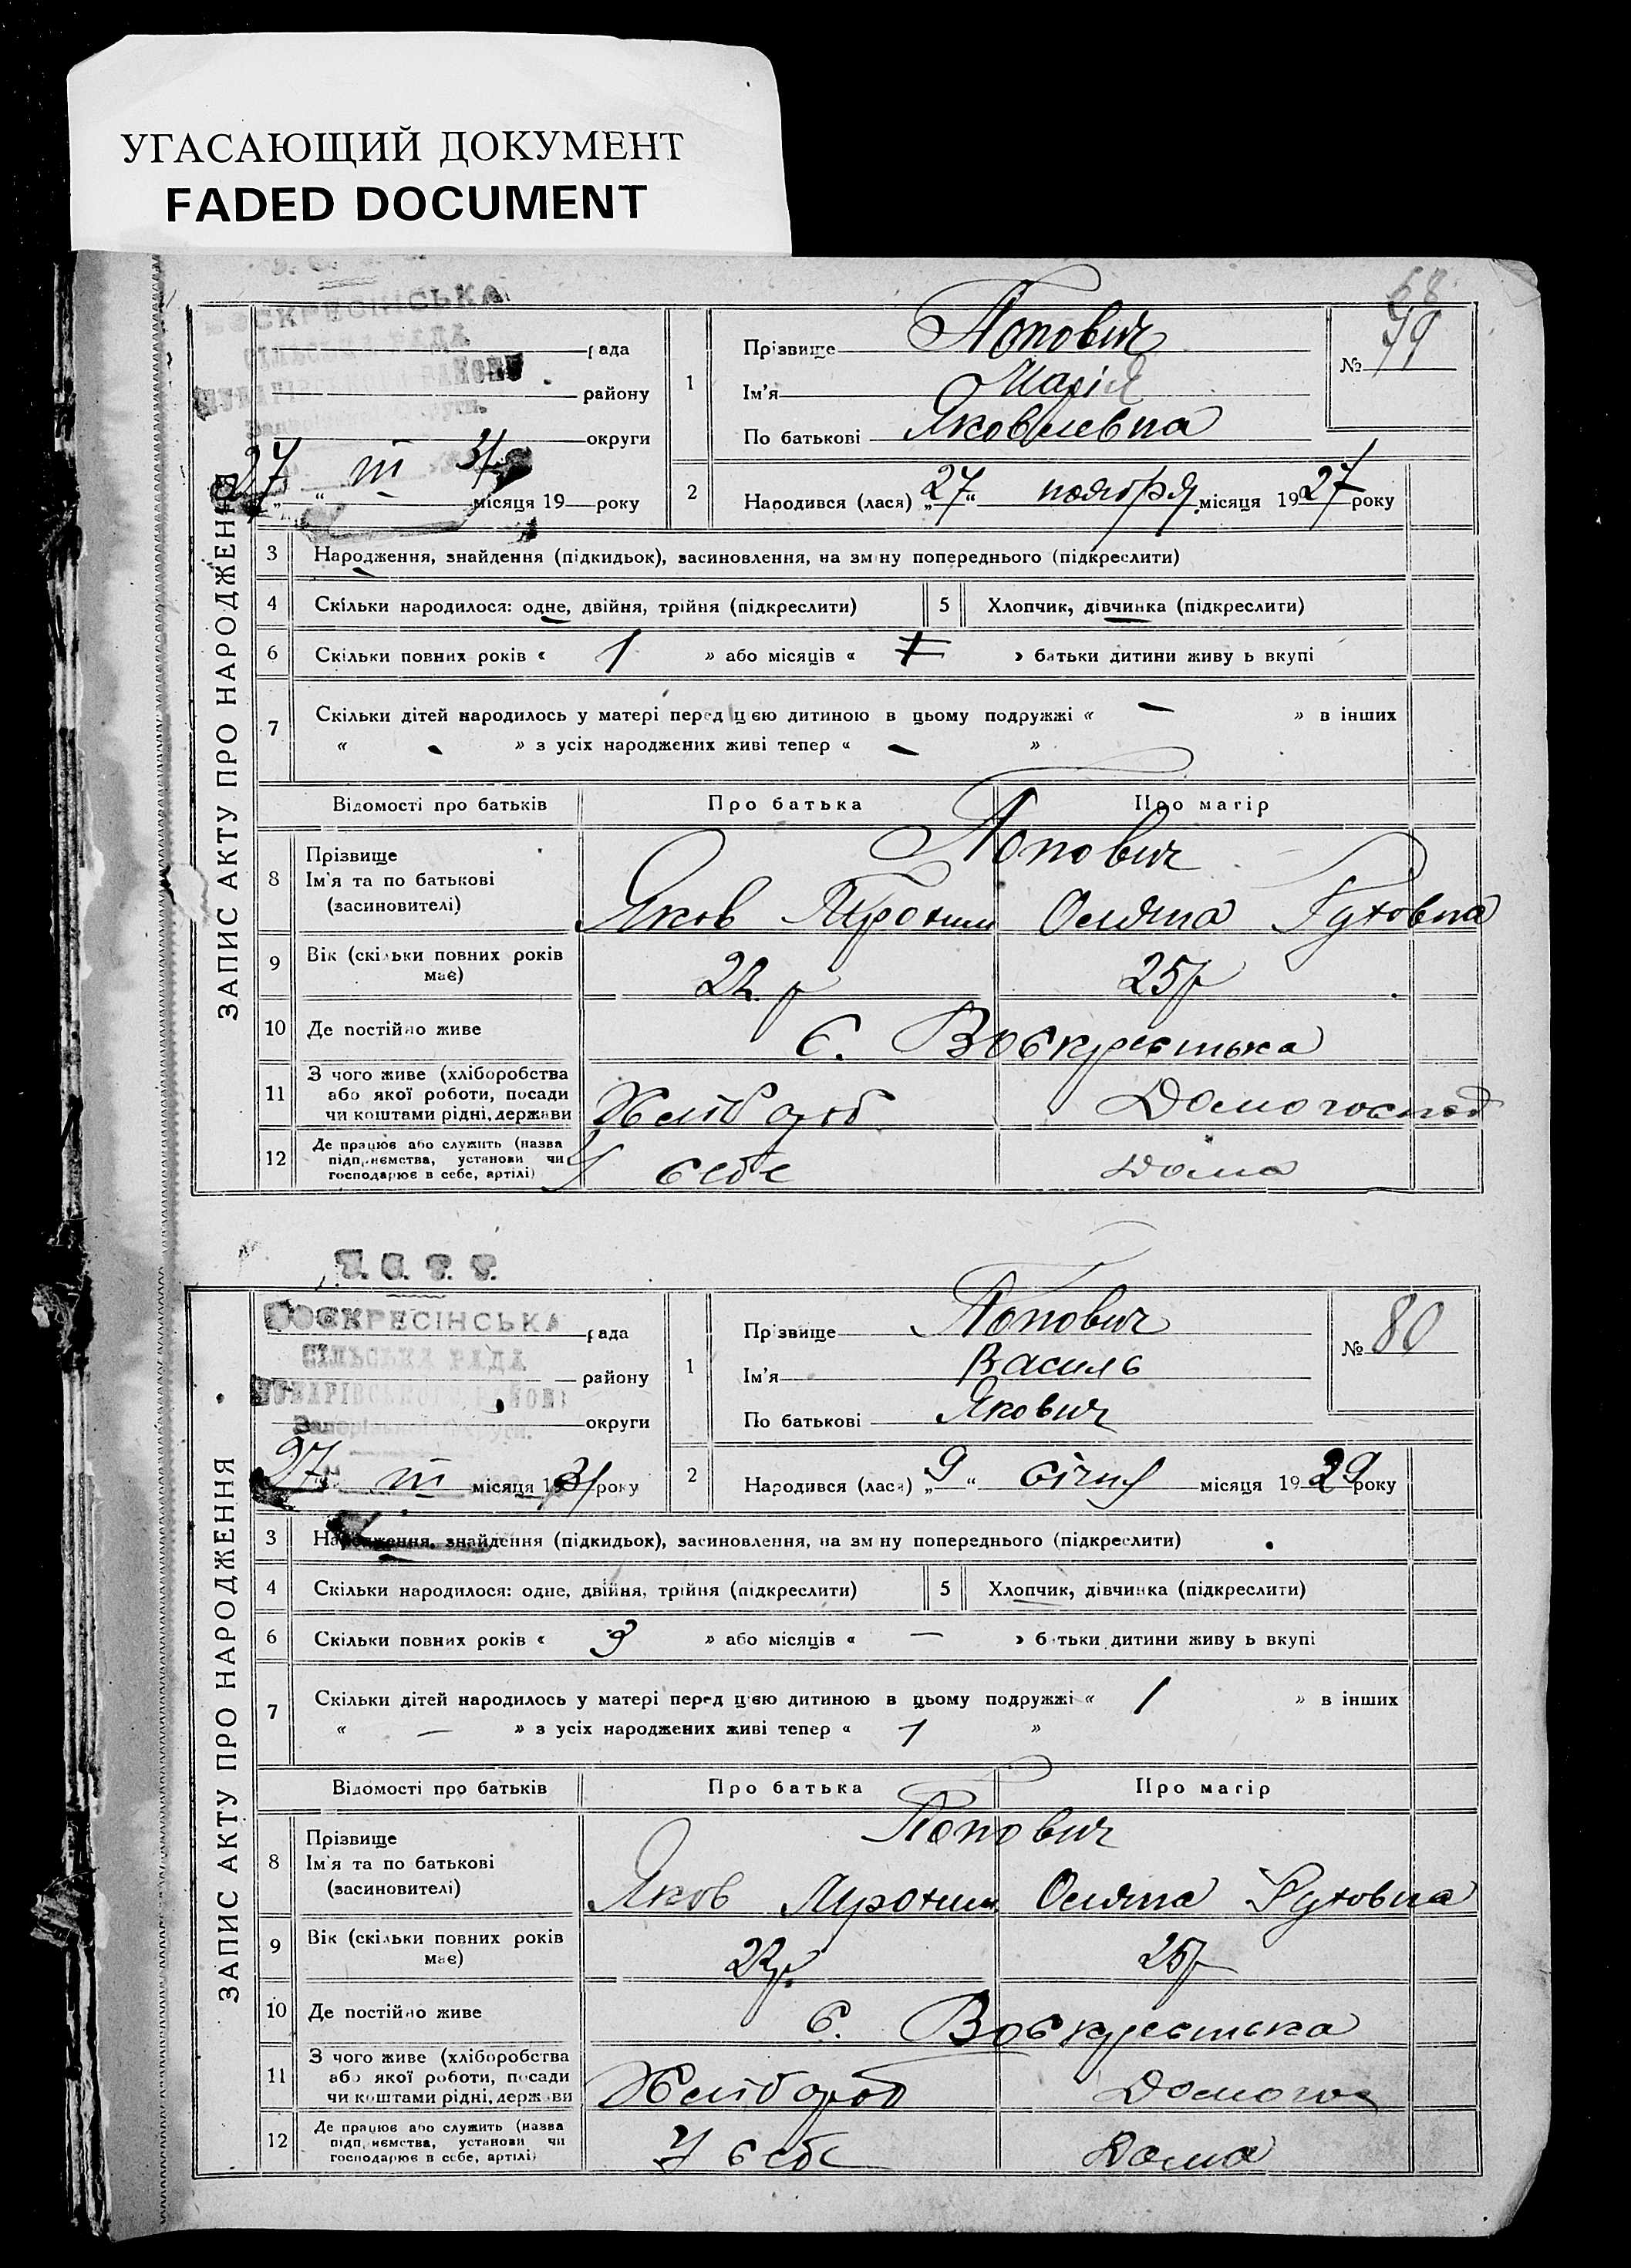 УГАСАЮЩИЙ ДОКУМЕНТ
FADED DOCUMENT
68
ВОСКРЕСІНСЬКА
СІЛЬСЬКА РАДА
рада
району
округи
27 III 31
місяця 19 року
1
Прізвище Попович
Ім'я Марія
По батькові Яковлевна
№ 79
2
Народився (лася) „27“ ноября місяця 1927 року
ЗАПИС АКТУ ПРО НАРОДЖЕННЯ
3 Народження, знайдення (підкидьок), засиновлення, на зміну попереднього (підкреслити)
4 Скільки народилося: одне, двійня, трійня (підкреслити) 5 Хлопчик, дівчинка (підкреслити)
6 Скільки повних років « 1 » або місяців « » батьки дитини живуть вкупі
7 Скільки дітей народилось у матері перед цією дитиною в цьому подружжі « — » в інших
« - » з усіх народжених живі тепер « — »
Відомості про батьків Про батька Про матір
8 Прізвище Попович
Ім'я та по батькові
(засиновителі) Яков Осияна
9 Вік (скільки повних років має) 22 р 25 р
10 Де постійно живе с. Воскрестька
11 З чого живе (хліборобства
або якої роботи, посади
чи коштами рідні, держави Хлібороб Домогоспод
12 Де працює або служить (назва
підприємства, установи чи
господарює в себе, артілі) У себе Дома
У. С. Р. Р.
ВОСКРЕСІНСЬКА
СІЛЬСЬКА РАДА
рада
району
Запорізької Округи.
округи
27 III місяця 1931 року
1
Прізвище Попович
Ім'я Василь
По батькові Якович
№ 80
2
Народився (лася) „9“ січня місяця 1929 року
ЗАПИС АКТУ ПРО НАРОДЖЕННЯ
3 Народження, знайдення (підкидьок), засиновлення, на зміну попереднього (підкреслити)
4 Скільки народилося: одне, двійня, трійня (підкреслити) 5 Хлопчик, дівчинка (підкреслити)
6 Скільки повних років « 3 » або місяців « — » батьки дитини живуть вкупі
7 Скільки дітей народилось у матері перед цією дитиною в цьому подружжі « 1 » в інших
« — » з усіх народжених живі тепер « 1 »
Відомості про батьків Про батька Про матір
8 Прізвище Попович
Ім'я та по батькові
(засиновителі) Яков Осияна
9 Вік (скільки повних років має) 22 р. 25 р
10 Де постійно живе с. Воскрестька
11 З чого живе (хліборобства
або якої роботи, посади
чи коштами рідні, держави Хлібороб Домогос
12 Де працює або служить (назва
підприємства, установи чи
господарює в себе, артілі) У себе Дома